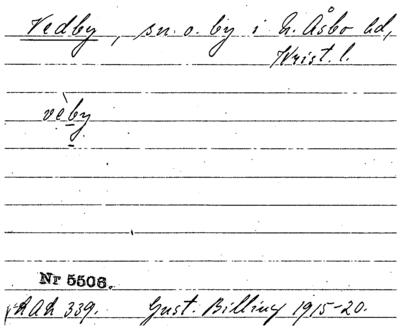 Vedby, sn. o. by i N. Åsbo hd,
Krist. l.
vèby
Nr 5506.
339. Gust. Billing 1915-20.